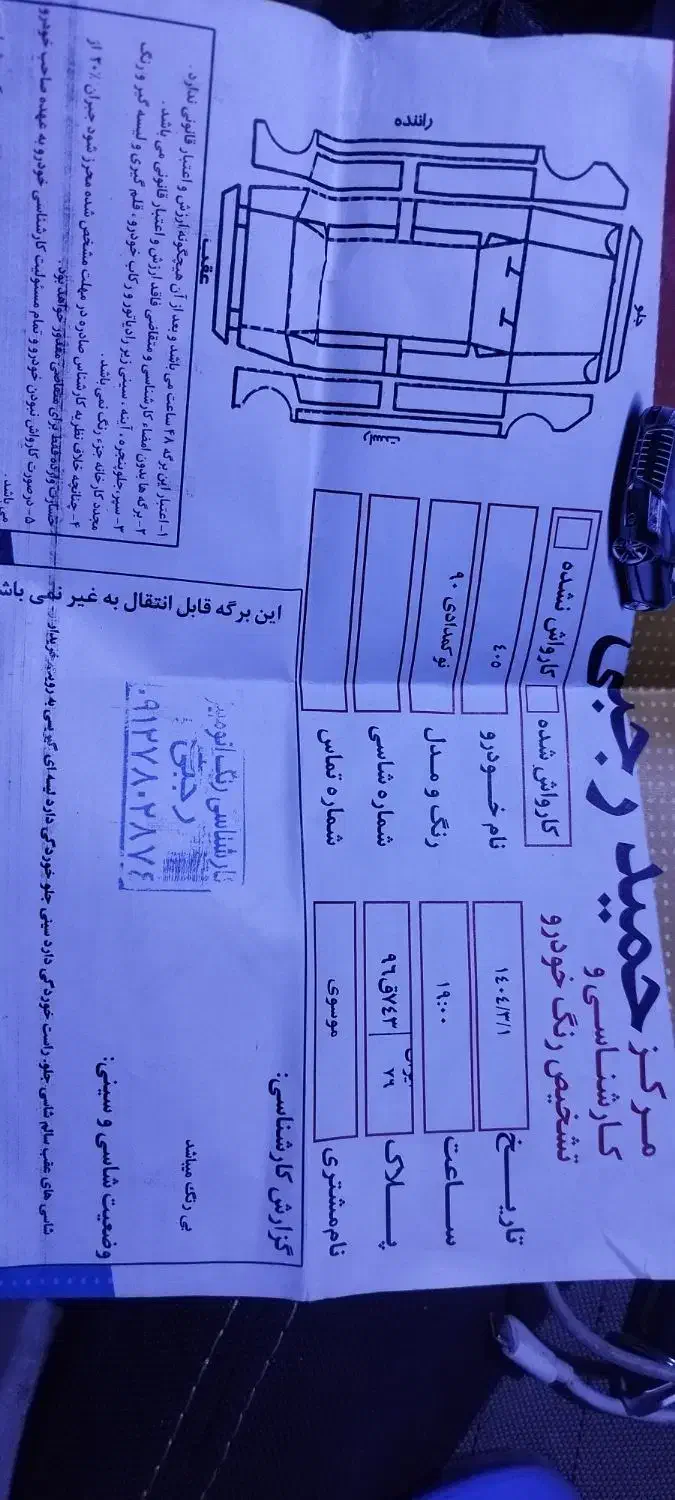 مرکز
کارشناسی و
تشخیص رنگ خودرو
حمید رجبی
تاریخ ۱۴۰۴/۳/۱
ساعت ۱۹:۰۰
پلاک ۷۹ ۷۴۳ق۹۶
نام مشتری موسوی
کارواش شده
کارواش نشده
نام خودرو ۴۰۵
رنگ و مدل نوکمدادی ۹۰
شماره شاسی
شماره تماس
جلو
راننده
شاگرد
عقب
گزارش کارشناسی:
بی رنگ میباشد
وضعیت شاسی و سینی:
شاسی های عقب سالم شاسی جلو راست خوردگی دارد سینی جلو خوردگی دارد لبه ای
کارشناسی رنگ اتومبیل
رجبی
۰۹۱۲۷۸۰۲۸۷۴
این برگه قابل انتقال به غیر نمی باشد
۱- اعتبار این برگه ۴۸ ساعت می باشد و بعد از آن هیچگونه ارزش و اعتبار قانونی ندارد.
۲- برگه ها بدون امضاء کارشناسی و متقاضی فاقد ارزش و اعتبار قانونی می باشد.
۳- سپر، جلوپنجره، آینه، سینی زیر رادیاتور و رکاب خودرو، قلم گیری و لیسه گیر و رنگ
مجدد کارخانه جزء رنگ نمی باشد.
۴- چنانچه خلاف نظریه کارشناس صادره در مهلت مشخص شده محرز شود جبران ۲۰٪ از
خسارت وارده فقط برای متقاضی مقدور خواهد بود.
۵- در صورت کارواش نبودن خودرو و تمام مسئولیت کارشناسی خودرو به عهده صاحب خودرو
می باشد.